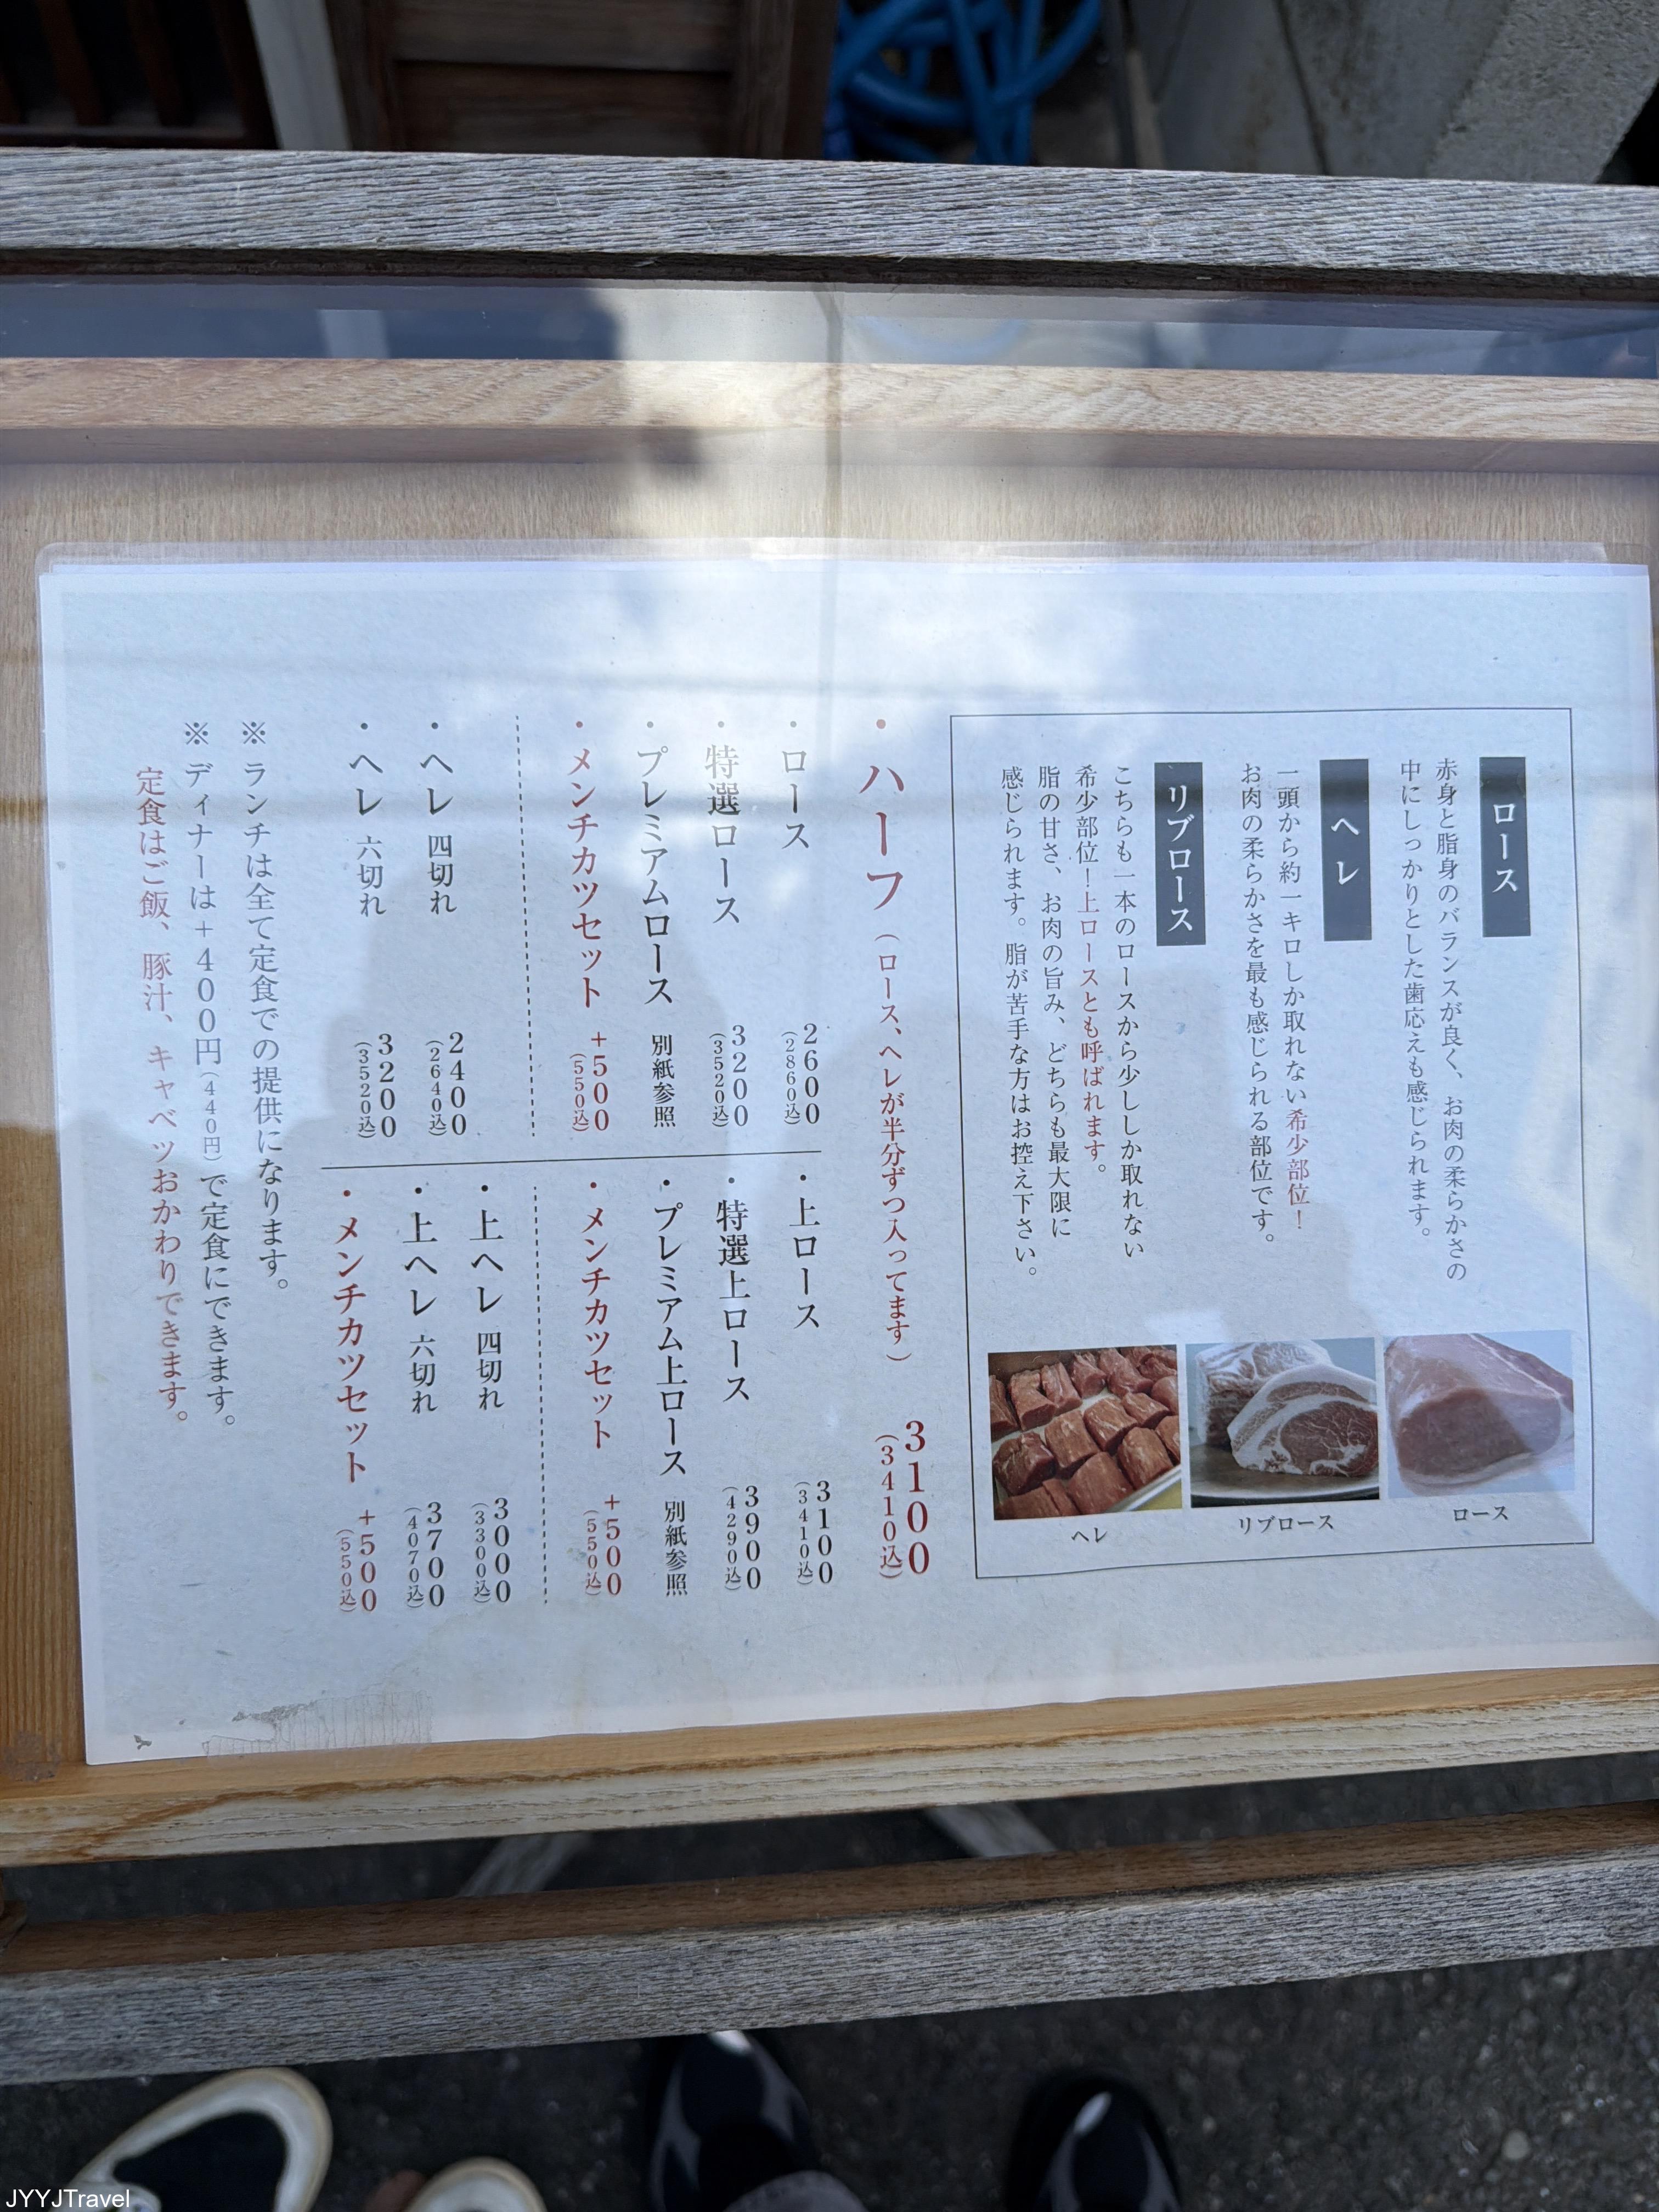 ロース
赤身と脂身のバランスが良く、お肉の柔らかさの
中にしっかりとした歯応えも感じられます。
ヘレ
一頭から約一キロしか取れない希少部位!
お肉の柔らかさを最も感じられる部位です。
リブロース
こちらも一本のロースから少ししか取れない
希少部位!上ロースとも呼ばれます。
脂の甘さ、お肉の旨み、どちらも最大限に
感じられます。脂が苦手な方はお控え下さい。
ロース
リブロース
ヘレ
・ハーフ(ロース、ヘレが半分ずつ入ってます) 3100
(3410込)
・ロース 2600
(2860込)
・特選ロース 3200
(3520込)
・プレミアムロース 別紙参照
・メンチカツセット +500
(550込)
・ヘレ 四切れ 2400
(2640込)
・ヘレ 六切れ 3200
(3520込)
・上ロース 3100
(3410込)
・特選上ロース 3900
(4290込)
・プレミアム上ロース 別紙参照
・メンチカツセット +500
(550込)
・上ヘレ 四切れ 3000
(3300込)
・上ヘレ 六切れ 3700
(4070込)
・メンチカツセット +500
(550込)
※ランチは全て定食での提供になります。
※ディナーは+400円(440円)で定食にできます。
定食はご飯、豚汁、キャベツおかわりできます。
JYYJTravel